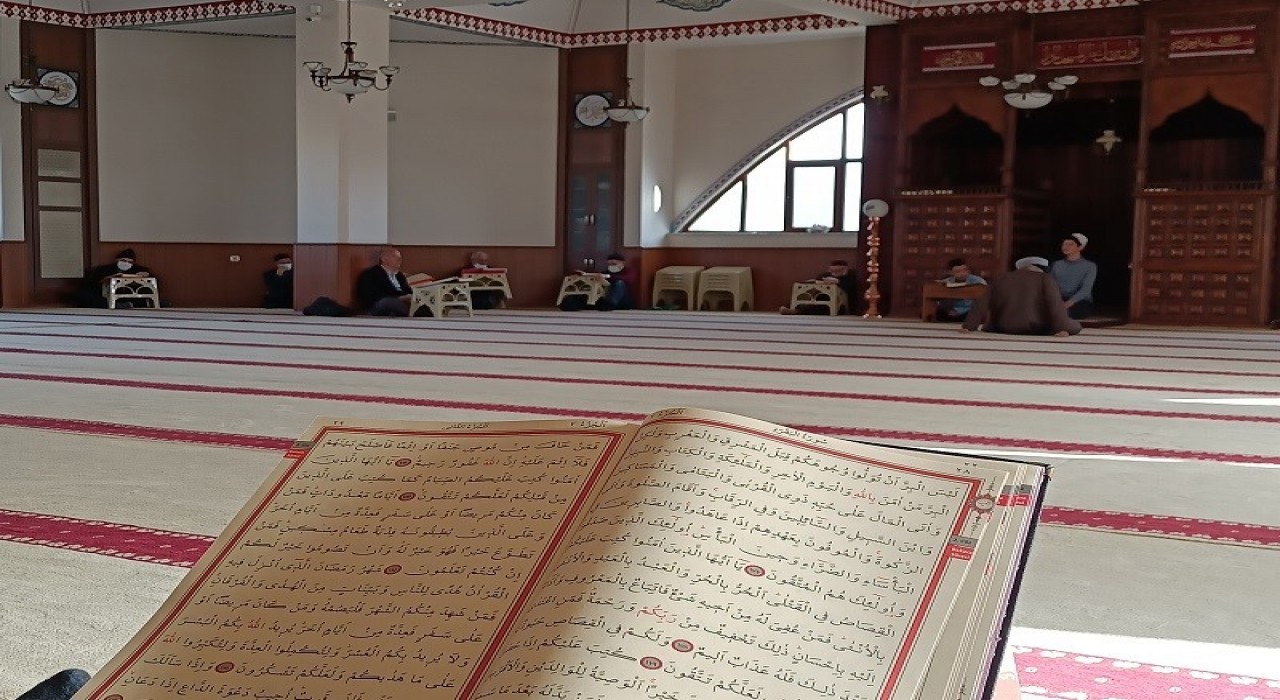 سُورَةُ الْبَقَرَةِ
لَيْسَ الْبِرَّ اَنْ تُوَلُّوا وُجُوهَكُمْ قِبَلَ الْمَشْرِقِ وَالْمَغْرِبِ
الْبِرَّ مَنْ اٰمَنَ بِاللّٰهِ وَالْيَوْمِ الْاٰخِرِ وَالْمَلٰئِكَةِ وَالْكِتَابِ
وَاٰتَى الْمَالَ عَلٰى حُبِّهِ ذَوِى الْقُرْبٰى وَالْيَتَامٰى وَالْمَسَاكِينَ
وَابْنَ السَّبِيلِ وَالسَّائِلِينَ وَفِى الرِّقَابِ وَاَقَامَ الصَّلٰوةَ
الزَّكٰوةَ وَالْمُوفُونَ بِعَهْدِهِمْ اِذَا عَاهَدُوا وَالصَّابِرِينَ
الْبَأْسَاءِ وَالضَّرَّاءِ وَحِينَ الْبَأْسِ اُولٰئِكَ الَّذِينَ
وَاُولٰئِكَ هُمُ الْمُتَّقُونَ يَا اَيُّهَا الَّذِينَ اٰمَنُوا كُتِبَ
الْقِصَاصُ فِى الْقَتْلٰى اَلْحُرُّ بِالْحُرِّ وَالْعَبْدُ بِالْعَبْدِ
بِالْاُنْثٰى فَمَنْ عُفِىَ لَهُ مِنْ اَخِيهِ شَىْءٌ فَاتِّبَاعٌ بِالْمَعْرُوفِ
اِلَيْهِ بِاِحْسَانٍ ذٰلِكَ تَخْفِيفٌ مِنْ رَبِّكُمْ وَرَحْمَةٌ فَمَنِ
بَعْدَ ذٰلِكَ فَلَهُ عَذَابٌ اَلِيمٌ وَلَكُمْ فِى الْقِصَاصِ
لَعَلَّكُمْ تَتَّقُونَ كُتِبَ عَلَيْكُمْ اِذَا
خَيْرًا اَلْوَصِيَّةُ لِلْوَالِدَيْنِ
بَدَّلَهُ بَعْدَ مَا
اَلْجُزْءُ الثَّانِى
فَمَنْ خَافَ مِنْ مُوصٍ جَنَفًا اَوْ اِثْمًا فَاَصْلَحَ بَيْنَهُمْ
فَلَا اِثْمَ عَلَيْهِ اِنَّ اللّٰهَ غَفُورٌ رَحِيمٌ يَا اَيُّهَا الَّذِينَ
اٰمَنُوا كُتِبَ عَلَيْكُمُ الصِّيَامُ كَمَا كُتِبَ عَلَى الَّذِينَ
مِنْ قَبْلِكُمْ لَعَلَّكُمْ تَتَّقُونَ اَيَّامًا مَعْدُودَاتٍ فَمَنْ
كَانَ مِنْكُمْ مَرِيضًا اَوْ عَلٰى سَفَرٍ فَعِدَّةٌ مِنْ اَيَّامٍ اُخَرَ
وَعَلَى الَّذِينَ يُطِيقُونَهُ فِدْيَةٌ طَعَامُ مِسْكِينٍ فَمَنْ
تَطَوَّعَ خَيْرًا فَهُوَ خَيْرٌ لَهُ وَاَنْ تَصُومُوا خَيْرٌ لَكُمْ
اِنْ كُنْتُمْ تَعْلَمُونَ شَهْرُ رَمَضَانَ الَّذِى اُنْزِلَ فِيهِ
الْقُرْاٰنُ هُدًى لِلنَّاسِ وَبَيِّنَاتٍ مِنَ الْهُدٰى وَالْفُرْقَانِ
فَمَنْ شَهِدَ مِنْكُمُ الشَّهْرَ فَلْيَصُمْهُ وَمَنْ كَانَ مَرِيضًا اَوْ
عَلٰى سَفَرٍ فَعِدَّةٌ مِنْ اَيَّامٍ اُخَرَ يُرِيدُ اللّٰهُ بِكُمُ الْيُسْرَ
وَلَا يُرِيدُ بِكُمُ الْعُسْرَ وَلِتُكْمِلُوا الْعِدَّةَ وَلِتُكَبِّرُوا اللّٰهَ
عَلٰى مَا هَدٰيكُمْ وَلَعَلَّكُمْ تَشْكُرُونَ وَاِذَا سَاَلَكَ
اُجِيبُ دَعْوَةَ الدَّاعِ اِذَا دَعَانِ